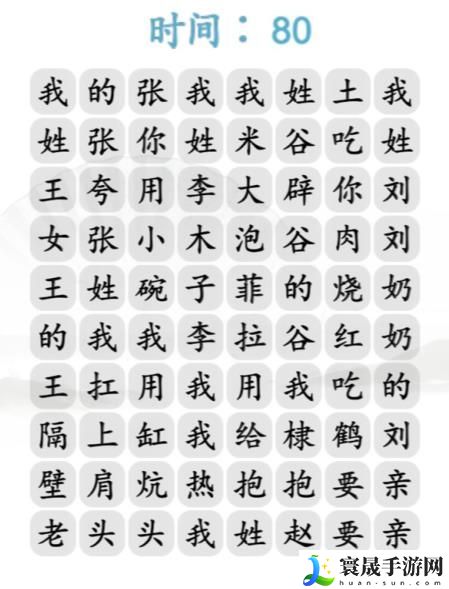 时间：80
我的张我我姓土我
姓张你姓米谷吃姓
王夸用李大辟你刘
女张小木泡谷肉刘
王姓碗子菲的烧奶
的我我李拉谷红奶
王扛用我用我吃的
隔上缸我给棣鹤刘
壁肩炕热抱抱要亲
老头头我姓赵要亲
寰晟手游网
huan-sun.com